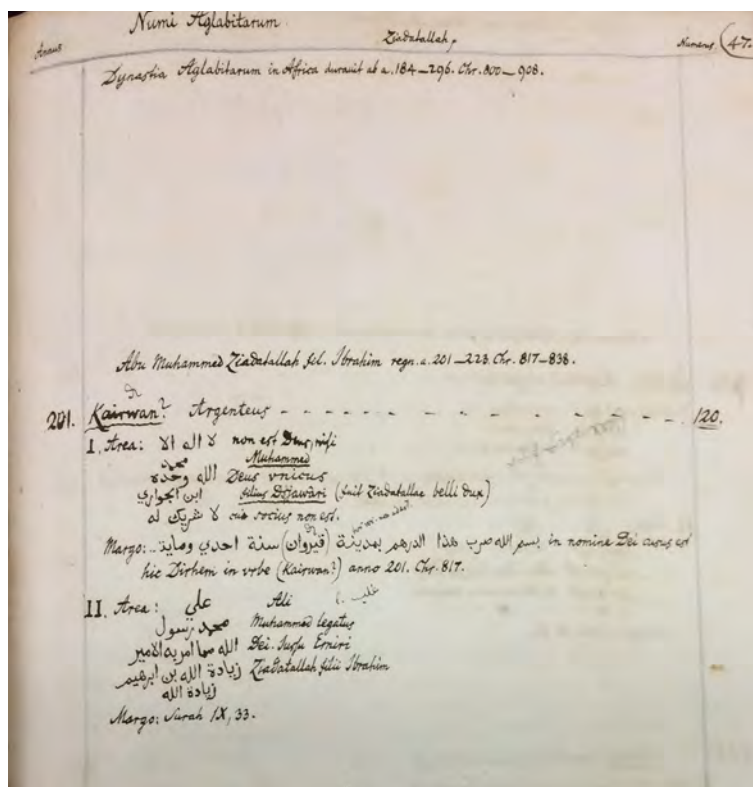 Numi Aglabitarum
Annus Ziadatallah. Numerus. (47.
Dynastia Aglabitarum in Africa duravit ab a. 184–296. Chr. 800–908.
Abu Muhammed Ziadatallah fil. Ibrahim regn. a. 201–223. Chr. 817–838.
201. Kairwan? Argenteus - - - - - - - - - - - - 120.
I. Area: لا اله الا non est Deus, nisi
محمد Muhammed
الله وحده Deus vnicus
ابن الجواري filius Djjawâri (fuit Ziadatallae belli dux)
لا شريك له cui socius non est.
Margo: بسم الله ضرب هذا الدرهم بمدينة (قيروان) سنة احدي وماية.. in nomine Dei cusus est
hic Dirhem in vrbe (Kairwan?) anno 201. Chr. 817.
II. Area: علي Ali غلب ?
محمد رسول Muhammed legatus
الله مما امر به الامير Dei. Iussu Emiri
زيادة الله بن ابرهيم Ziadatallah filii Ibrahim
زيادة الله
Margo: Surah IX, 33.